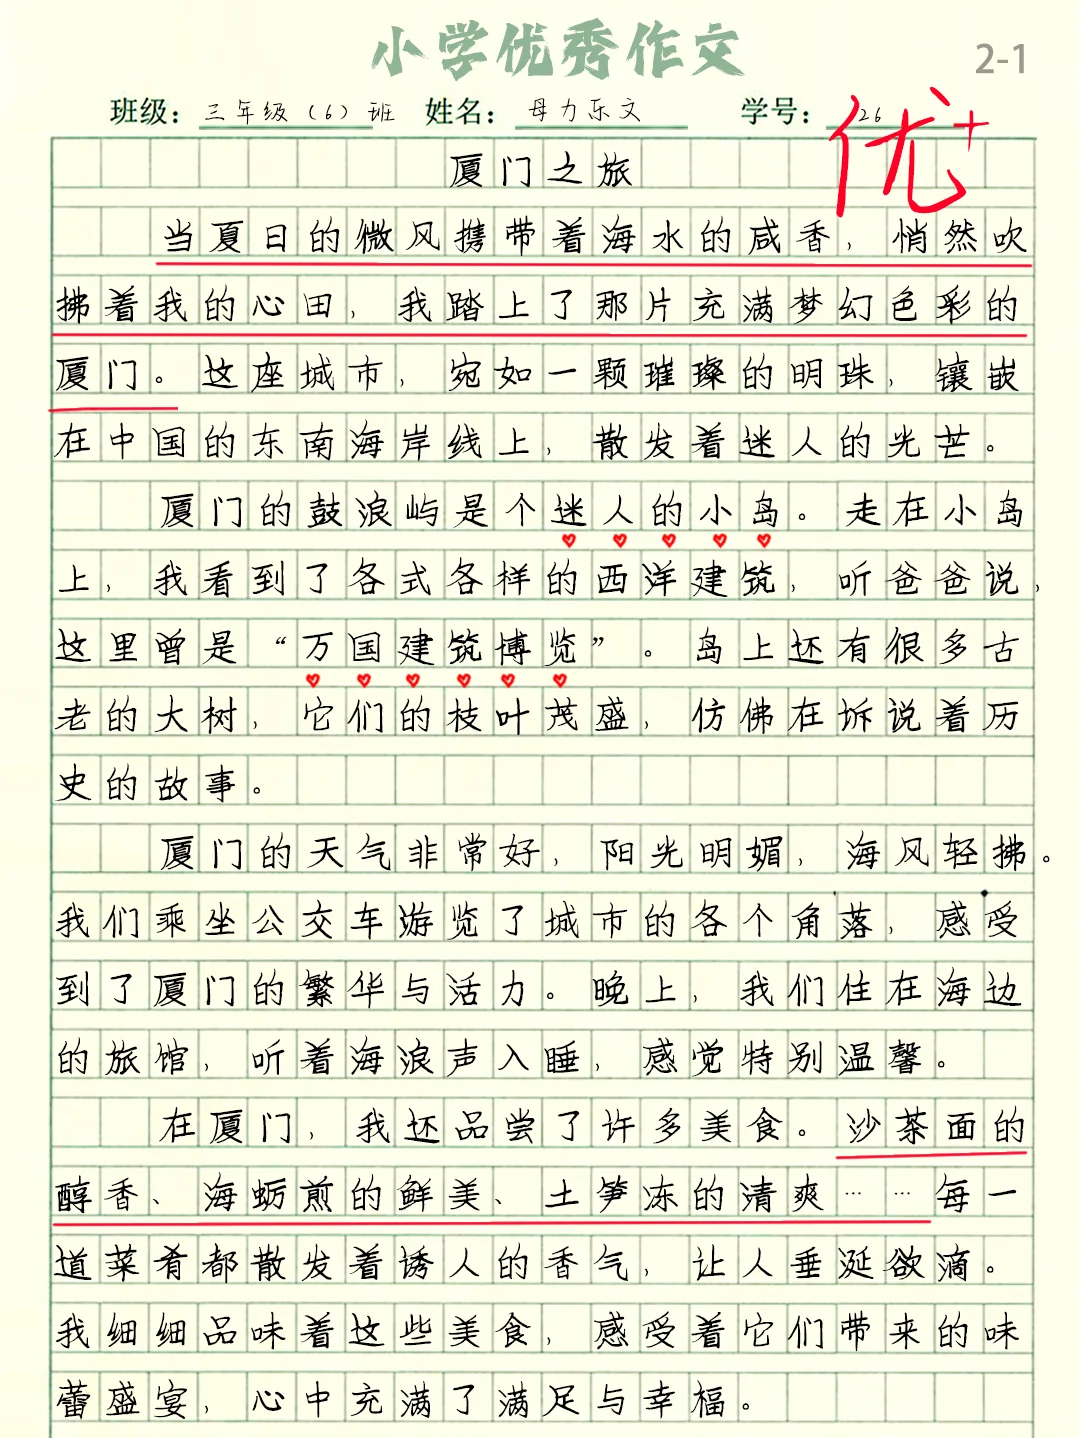 小学优秀作文
2-1
班级：三年级（6）班 姓名：母力乐文 学号：26
优+
厦门之旅
当夏日的微风携带着海水的咸香，悄然吹
拂着我的心田，我踏上了那片充满梦幻色彩的
厦门。这座城市，宛如一颗璀璨的明珠，镶嵌
在中国的东南海岸线上，散发着迷人的光芒。
厦门的鼓浪屿是个迷人的小岛。走在小岛
上，我看到了各式各样的西洋建筑，听爸爸说，
这里曾是“万国建筑博览”。岛上还有很多古
老的大树，它们的枝叶茂盛，仿佛在诉说着历
史的故事。
厦门的天气非常好，阳光明媚，海风轻拂。
我们乘坐公交车游览了城市的各个角落，感受
到了厦门的繁华与活力。晚上，我们住在海边
的旅馆，听着海浪声入睡，感觉特别温馨。
在厦门，我还品尝了许多美食。沙茶面的
醇香、海蛎煎的鲜美、土笋冻的清爽……每一
道菜肴都散发着诱人的香气，让人垂涎欲滴。
我细细品味着这些美食，感受着它们带来的味
蕾盛宴，心中充满了满足与幸福。